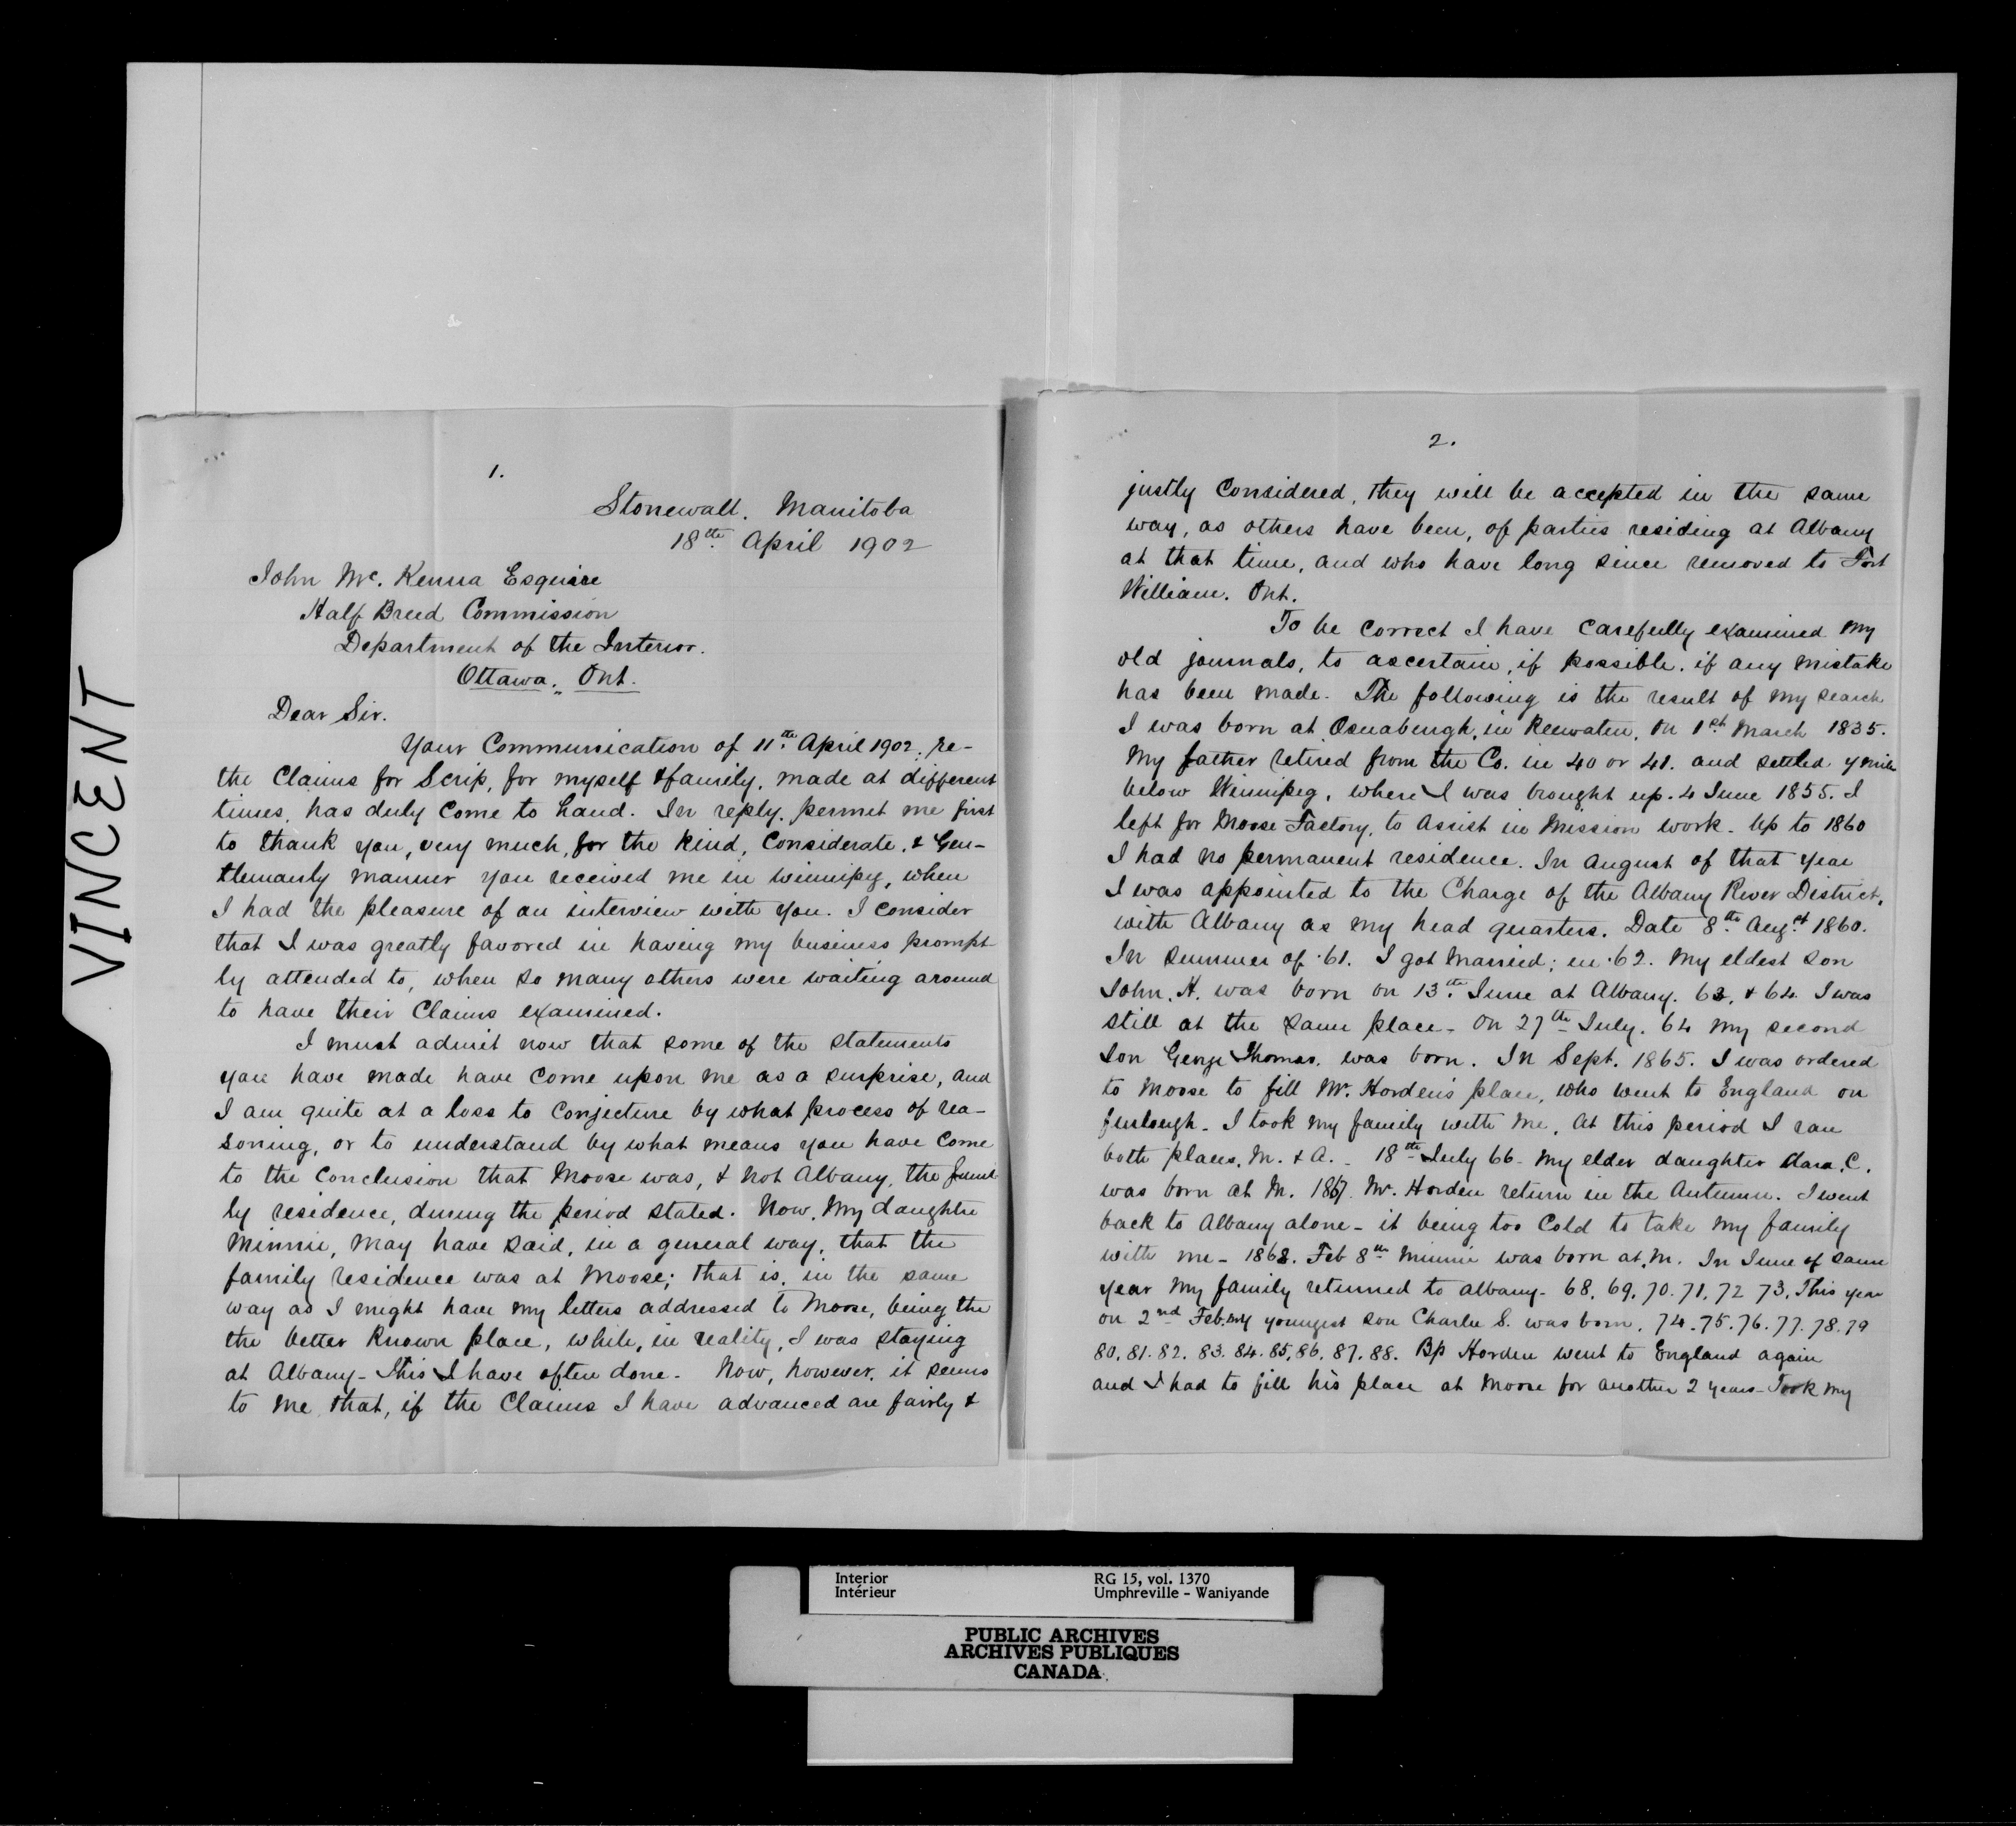 VINCENT
1.
Stonewall. Manitoba
18th April 1902
John Mc. Kenna Esquire
Half Breed Commission
Department of the Interior.
Ottawa. Ont.
Dear Sir.
Your Communication of 11th April 1902, re-
the Claims for Scrip, for myself & family, made at different
times, has duly come to hand. In reply, permit me first
to thank you, very much, for the kind, Considerate, & Gen-
tlemanly manner you received me in Winnipeg, when
I had the pleasure of an interview with you. I consider
that I was greatly favored in having my business prompt-
ly attended to, when so many others were waiting around
to have their Claims examined.
I must admit now that some of the statements
you have made have come upon me as a surprise, and
I am quite at a loss to conjecture by what process of rea-
soning, or to understand by what means you have come
to the conclusion that Moose was, & not Albany, the fami-
ly residence, during the period stated. Now, my daughter
Minnie, may have said, in a general way, that the
family residence was at Moose; that is, in the same
way as I might have my letters addressed to Moose, being the
the better known place, while, in reality, I was staying
at Albany - This I have often done - Now, however, it seems
to me that, if the Claims I have advanced are fairly &
2.
justly considered, they will be accepted in the same
way, as others have been, of parties residing at Albany
at that time, and who have long since removed to Fort
William. Ont.
To be correct I have carefully examined my
old journals, to ascertain, if possible, if any mistake
has been made. The following is the result of my search
I was born at Osnaburgh, in Keewaten, on 1st March 1835.
My father retired from the Co. in 40 or 41. and settled 7 mile
below Winnipeg, where I was brought up. 4 June 1855. I
left for Moose Factory, to assist in Mission work. Up to 1860
I had no permanent residence. In August of that year
I was appointed to the Charge of the Albany River District,
with Albany as my head quarters. Date 8th Augst 1860.
In summer of '61. I got married; in '62. my eldest son
John. H. was born on 13th June at Albany. 63, & 64. I was
still at the same place - On 27th July. 64 my second
son George Thomas. was born. In Sept. 1865. I was ordered
to Moose to fill Mr. Horden's place, who went to England on
furlough. I took my family with me. At this period I ran
both places, M. & A. - 18th July 66 - my elder daughter Clara. C.
was born at M. 1867. Mr. Horden return in the Autumn. I went
back to Albany alone - it being too cold to take my family
with me - 1868. Feb 8th Minnie was born at M. In June of same
year my family returned to Albany - 68, 69, 70. 71, 72 73, This year
on 2nd Feb. my youngest son Charlie S. was born, 74. 75. 76. 77. 78. 79
80, 81. 82. 83. 84. 85, 86, 87. 88. Bp Horden went to England again
and I had to fill his place at Moose for another 2 years - Took my
Interior
Intérieur
RG 15, vol. 1370
Umphreville - Waniyande
PUBLIC ARCHIVES
ARCHIVES PUBLIQUES
CANADA